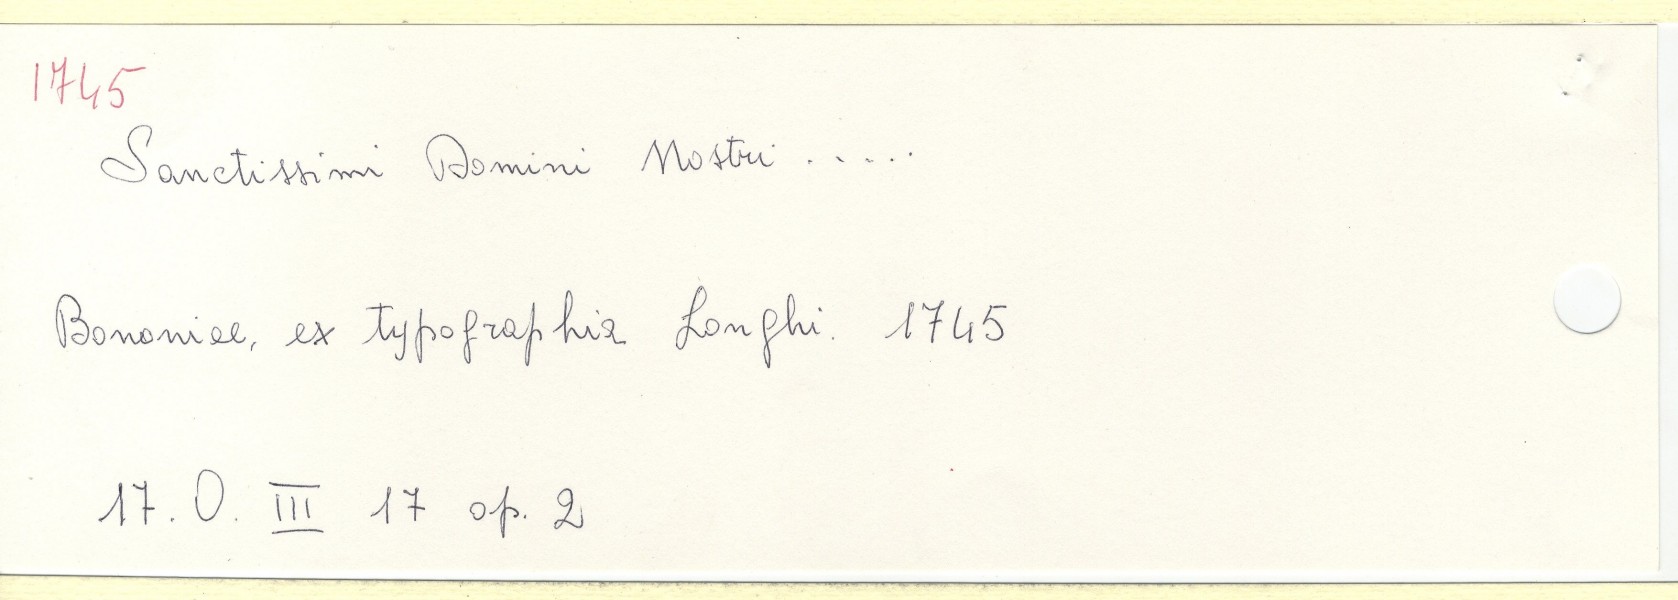 1745
Sanctissimi Domini Nostri .....
Bononiae, ex typographia Longhi. 1745
17. O. III 17 op. 2